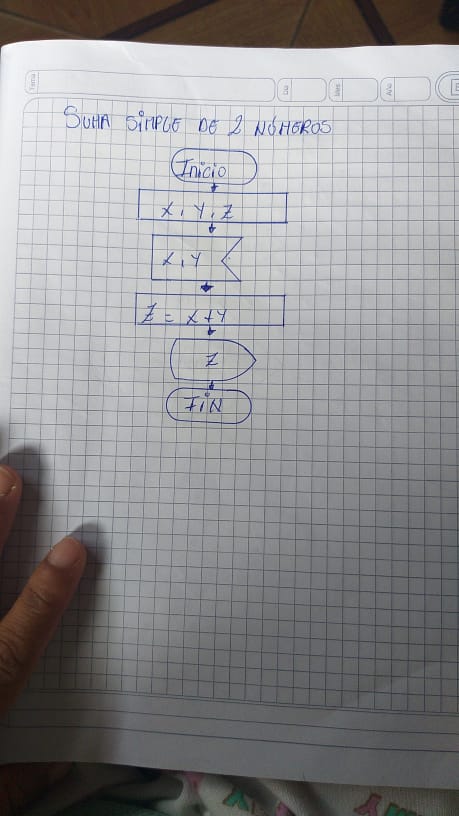 Tema
Día
Mes
Año
SUMA SIMPLE DE 2 NÚMEROS
Inicio
X, Y, Z
X, Y
Z = X+Y
Z
FIN